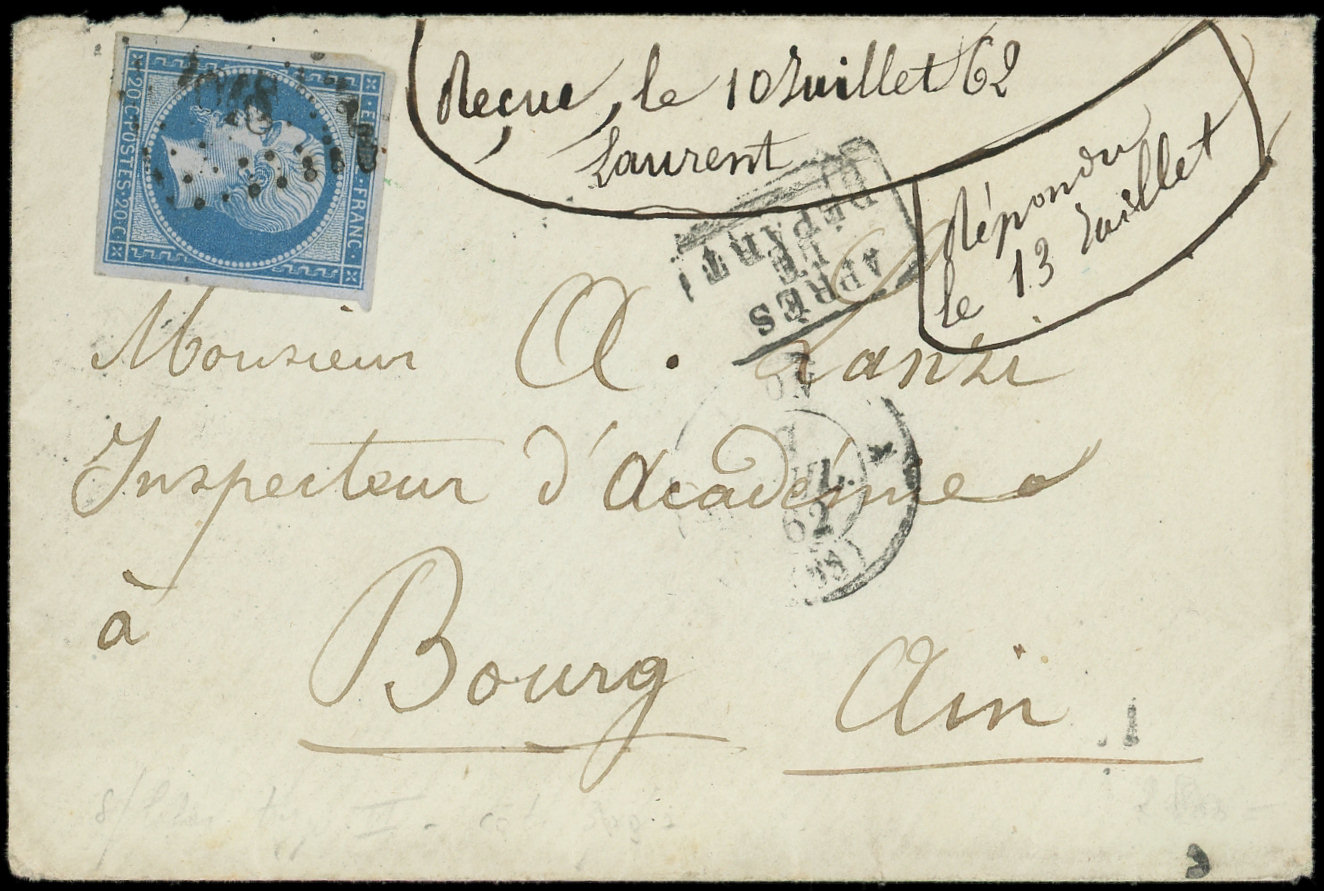 Reçue, le 10 Juillet 62
Laurent
Répondu
le 13 Juillet
EMPIRE FRANC.
20 C. POSTES. 20 C
APRÈS
LE
DÉPART
Monsieur A. Lanzi
Inspecteur d'académie
à
Bourg Ain
62